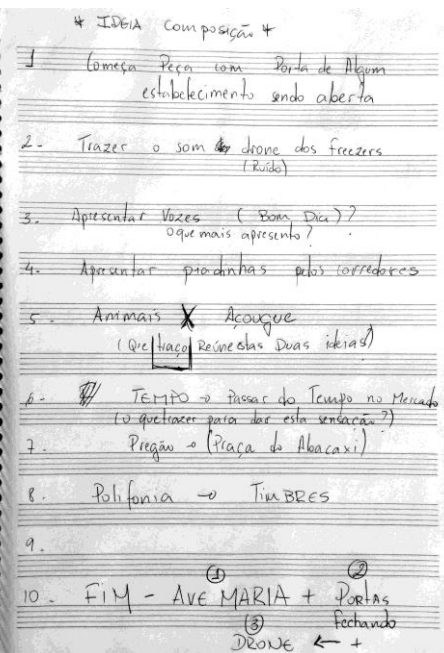 * IDEIA composição *
1 Começa Peça com Porta de Algum
estabelecimento sendo aberta
2- Trazer o som drone dos freezers
(Ruído)
3. Apresentar Vozes (Bom Dia)?
O que mais apresento?
4. Apresentar piadinhas pelos corredores
5. Animais X Açougue
(Que traço Reúne estas Duas ideias?)
6- TEMPO → Passar do Tempo no Mercado
(O que trazer para dar esta sensação?)
7. Pregão → (Praça do Abacaxi)
8. Polifonia → TIMBRES
9.
① ②
10. FIM - AVE MARIA + PORTAS
fechando
③
DRONE ← +